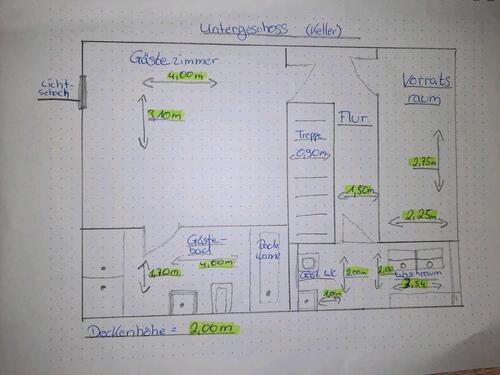 Untergeschoss (Keller)
Gästezimmer
4,00m
Licht-
schach
3,10m
Vorrats
raum
Flur
Treppe
0,90m
2,75m
1,50m
2,25m
Gäste-
bad
4,00m
1,70m
Bade
wanne
Gäst WC
2,00m
2,00
Waschraum
2,54
1,00m
Deckenhöhe = 2,00m